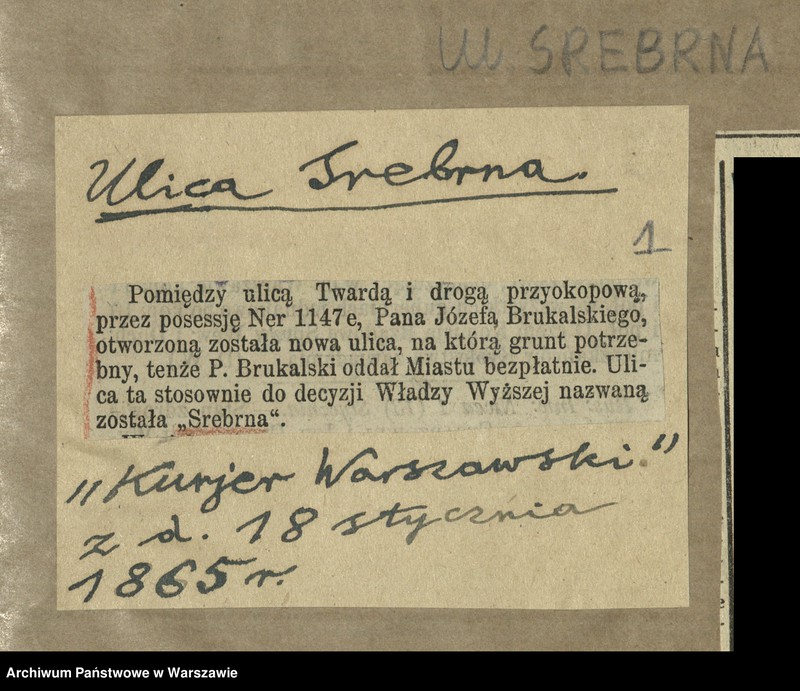 Ul SREBRNA
Ulica Srebrna.
1
Pomiędzy ulicą Twardą i drogą przyokopową,
przez posessję Ner 1147e, Pana Józefa Brukalskiego,
otworzoną została nowa ulica, na którą grunt potrze-
bny, tenże P. Brukalski oddał Miastu bezpłatnie. Uli-
ca ta stosownie do decyzji Władzy Wyższej nazwaną
została „Srebrna“.
„Kurjer Warszawski.”
z d. 18 stycznia
1865 r.
Archiwum Państwowe w Warszawie